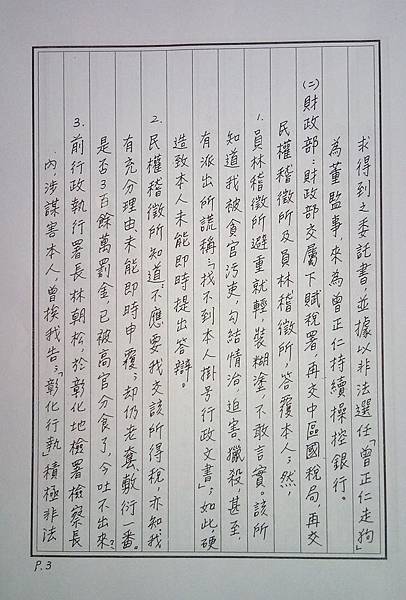 求得到之委託書，並據以非法選任「曾正仁走狗」
為董監事來為曾正仁持續操控銀行。
㈡財政部：財政部交屬下賦稅署，再交中區國稅局，再交
民權稽徵所及員林稽徵所，答覆本人；然，
1. 員林稽徵所避重就輕，裝糊塗，不敢言實。該所
知道我被貪官污吏勾結情治迫害、獵殺，甚至，
有派出所謊稱：「找不到本人掛号行政文書」；如此，硬
造致本人未能即時提出答辯。
2. 民權稽徵所知道：不應要我交該所得稅，亦知：我
有充分理由未能即時申覆；却仍老套敷衍一番。
是否3百餘萬罰金已被高官分食了，今吐不出來？
3. 前行政執行署長林朝松於彰化地檢署檢察長
內涉謀害本人，曾挨我告；「彰化行執」積極非法
P.3